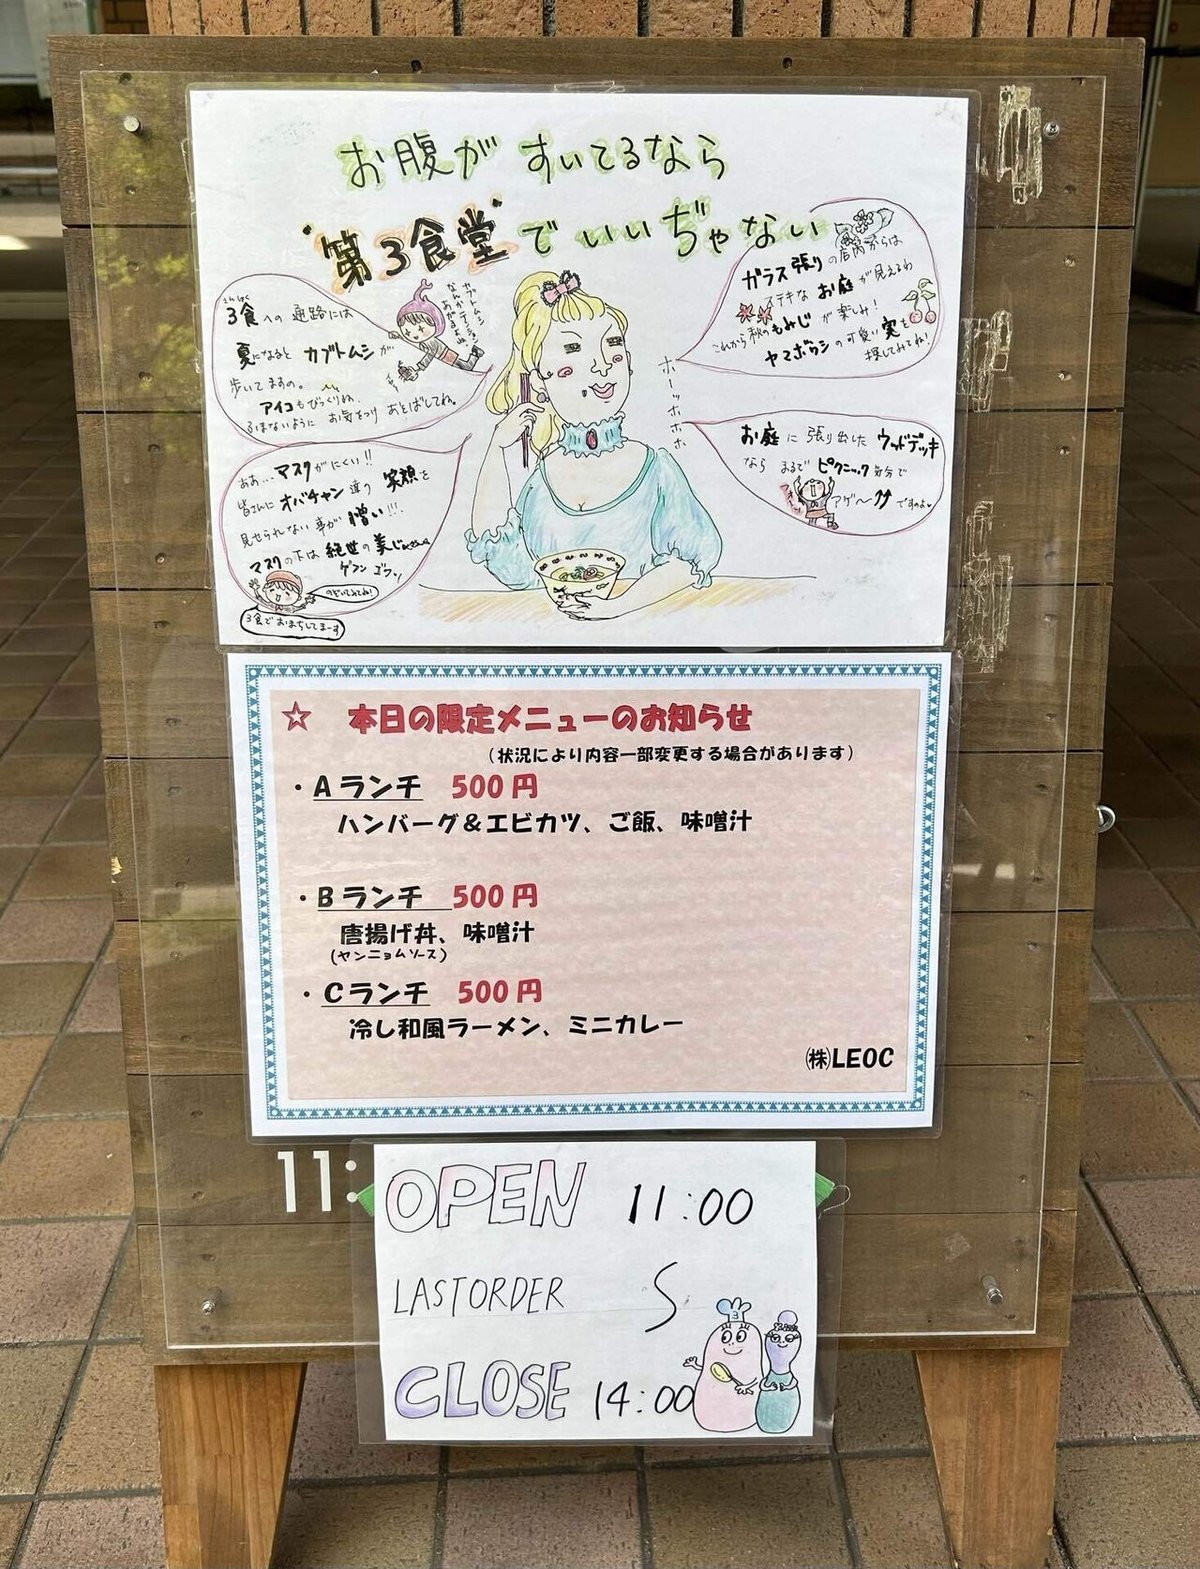 お腹が すいてるなら
"第3食堂"でいいぢゃない
3食への 通路には
夏になると カブトムシが
歩いてますの。
アイコもびっくりね
ふまないように お気をつけ あそばしてね。
カブトムシ
なんかテンション
あがるよね
ガラス張りの店内からは
ステキな お庭が見えるわ
これから秋のもみじが楽しみ!
ヤマボウシの可愛い実を
探してみてね!
ホーッホホホ
ああ…マスクがにくい!!
皆さんに オバチャン達の 笑顔を
見せられない事が 憎い!!!
マスクの下は 絶世の美じ
ゲフン ゴフン
のぞいてみてね!
3食でおまちしてまーす
お庭に 張り出した ウッドデッキ
なら まるで ピクニック気分で
アゲ〜↑↑ ですのよ
☆ 本日の限定メニューのお知らせ
(状況により内容一部変更する場合があります)
・Aランチ 500円
ハンバーグ&エビカツ、ご飯、味噌汁
・Bランチ 500円
唐揚げ丼、味噌汁
(ヤンニョムソース)
・Cランチ 500円
冷し和風ラーメン、ミニカレー
㈱LEOC
11:
OPEN 11:00
LASTORDER
CLOSE 14:00
3